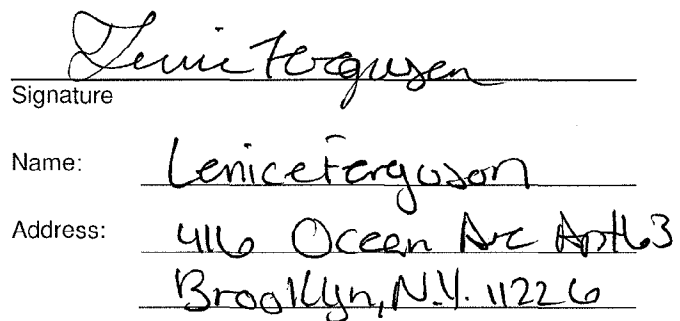 Lenice Ferguson
Signature
Name: Lenice Ferguson
Address: 416 Ocean Ave Apt 63
Brooklyn, N.Y. 11226